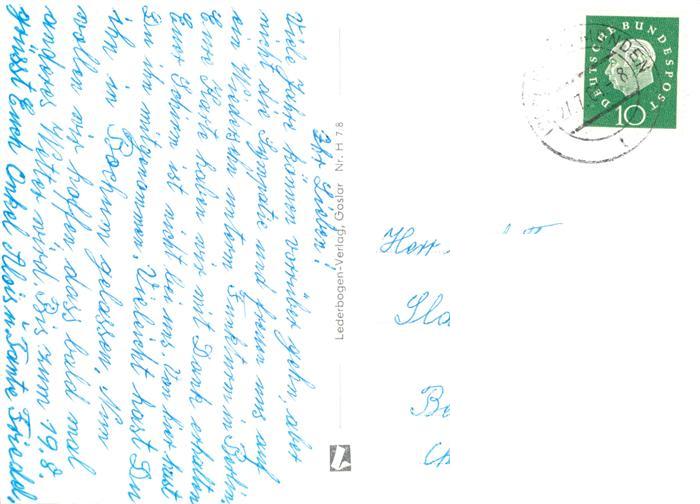 Ihr Lieben!
Viele Jahre können vorrüber gehn, aber
mich die und freuen uns auf
ein Wiedersehn unterm Funkturm in Berlin.
Eure Karte haben wir mit Dank erhalten
Euer Schirm ist nicht bei uns. Von hier hast
Du ihn mitgenommen. Vieleicht hast Du
ihn in Bochum gelassen. Nun
wollen wir hoffen dass bald mal
anderes Wetter wird. Bis zum 19.8.
grüsst Euch Onkel Alois u Tante Friedel.
Lederbogen-Verlag, Goslar Nr. H 78
DEUTSCHE BUNDESPOST
10
Herr